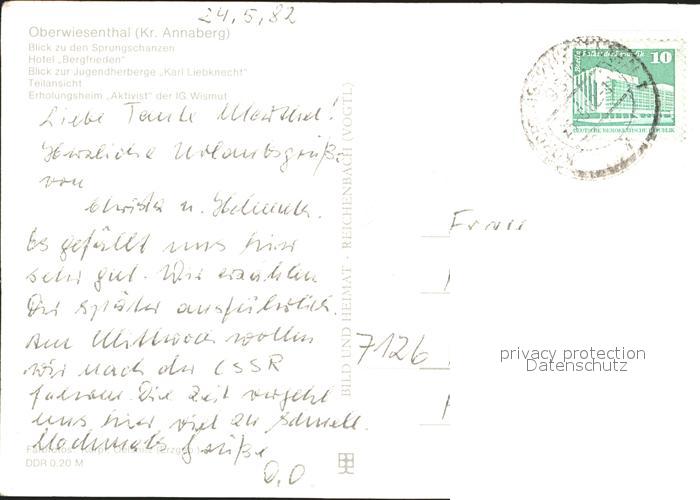 24.5.82
Oberwiesenthal (Kr. Annaberg)
Blick zu den Sprungschanzen
Hotel „Bergfrieden“
Blick zur Jugendherberge „Karl Liebknecht“
Teilansicht
Erholungsheim „Aktivist“ der IG Wismut
Liebe Tante
Herzliche Urlaubsgrüße
von
Christa u. Helmuth.
Es gefällt uns hier
sehr gut. Wir erzählen
Dir später ausführlich.
Am Mittwoch wollen
wir nach der CSSR
fahren. Die Zeit vergeht
uns hier viel zu schnell.
Nochmals Grüße
D.O
DDR 0.20 M
BILD UND HEIMAT · REICHENBACH (VOGTL)
10
DEUTSCHE DEMOKRATISCHE REPUBLIK
Frau
7126
privacy protection
Datenschutz